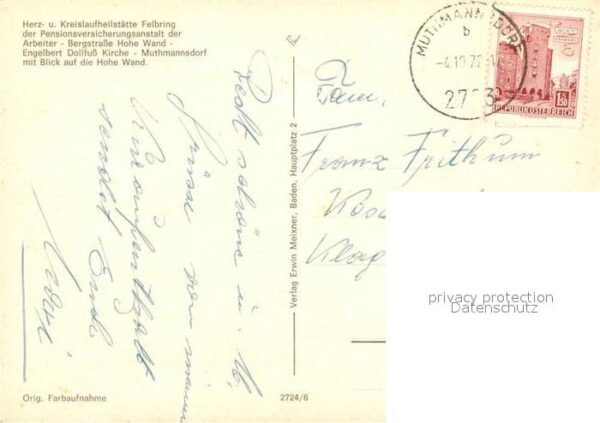 Herz- u. Kreislaufheilstätte Felbring
der Pensionsversicherungsanstalt der
Arbeiter - Bergstraße Hohe Wand -
Engelbert Dollfuß Kirche - Muthmannsdorf
mit Blick auf die Hohe Wand.
MUTHMANNSDORF
b
2723
1.50
REPUBLIK ÖSTERREICH
Fam.
Franz Frithum
Klag
Recht schöne u. 
Grüsse von meinem
Kuraufenthalt
sendet Euch
Verlag Erwin Meixner, Baden, Hauptplatz 2
Orig. Farbaufnahme
2724/6
privacy protection
Datenschutz